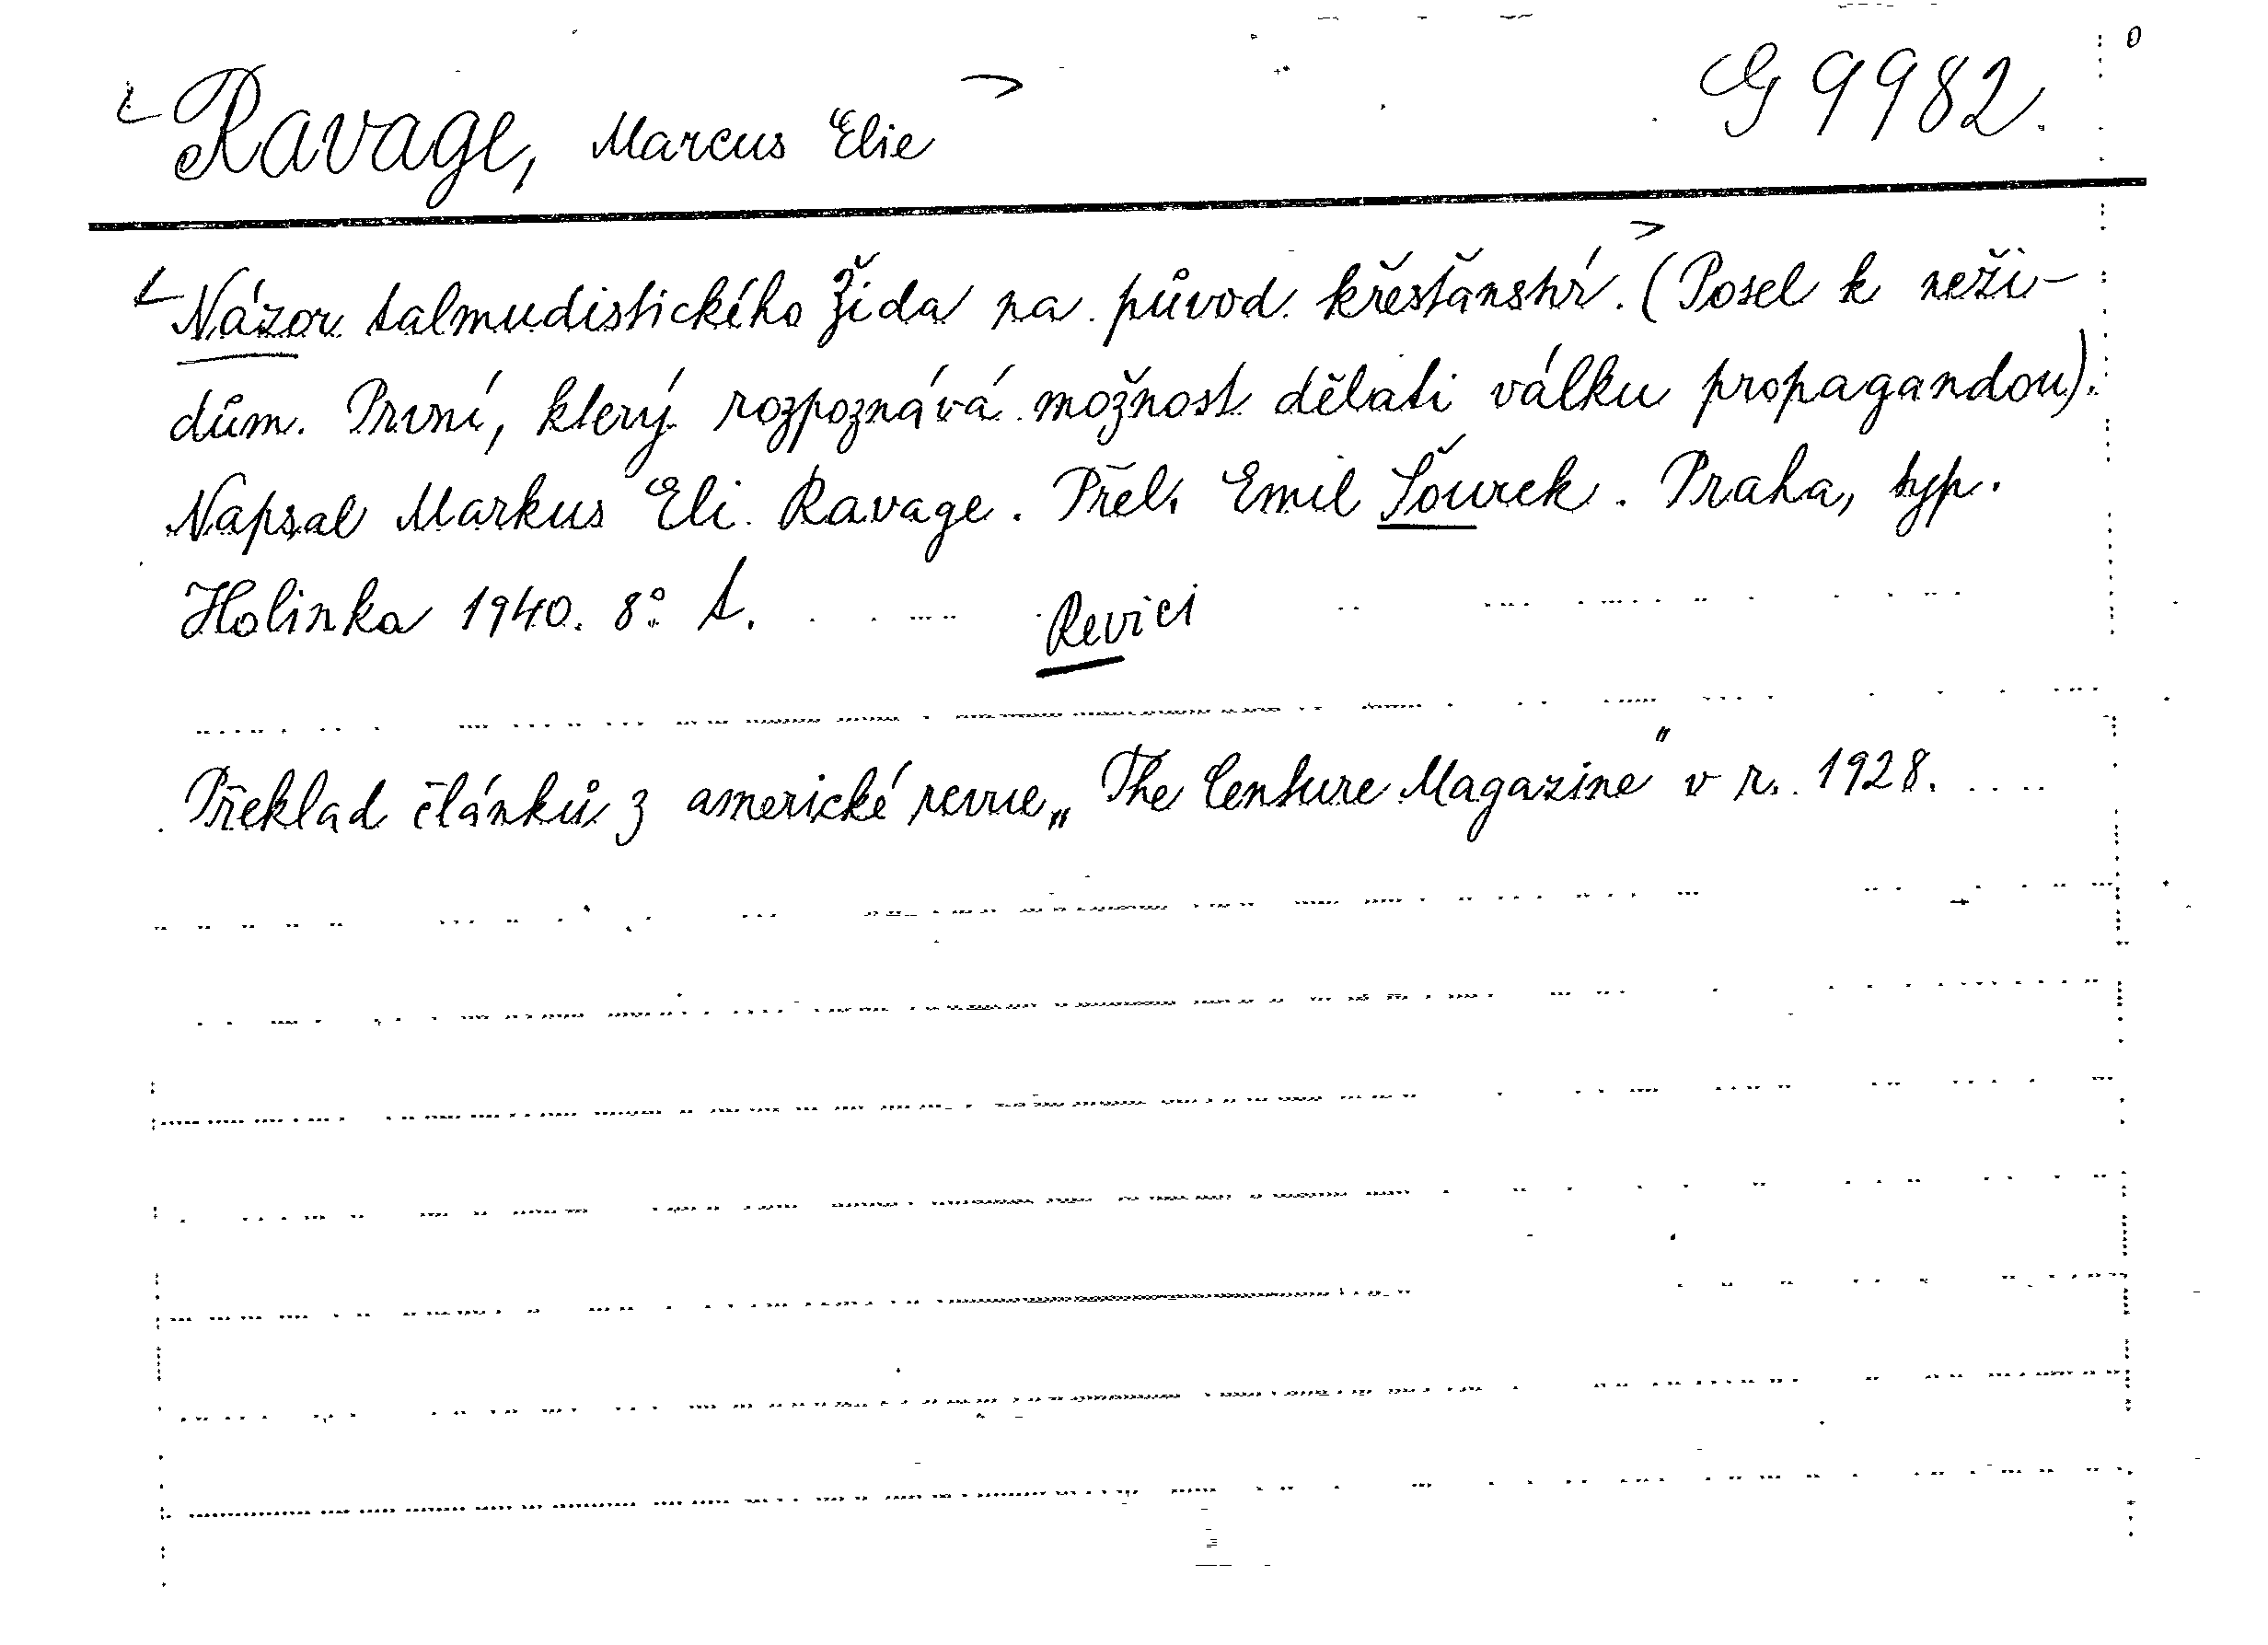 Ravage, Marcus Elie
G 9982.
Názor talmudistického Žida na původ křesťanství. (Posel k neži-
dům. První, který rozpoznává možnost dělati válku propagandou).
Napsal Markus Eli Ravage. Přel. Emil Šourek. Praha, typ.
Holinka 1940. 8°
Revici
Překlad článků z americké revue „The Centure Magazine" v r. 1928.